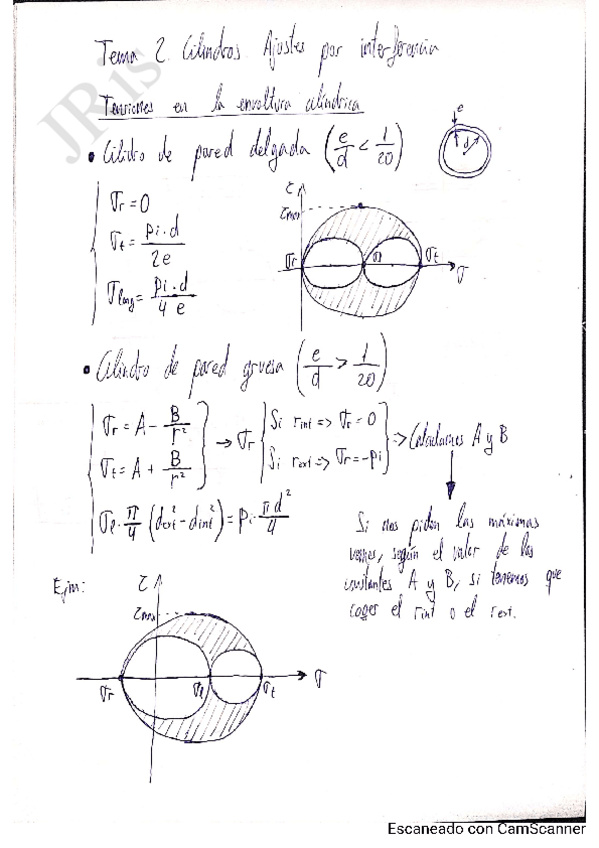 Tema 2. Cilindros. Ajustes por interferencia
JRis
Tensiones en la envoltura cilíndrica
• Cilidro de pared delgada (e/d < 1/20)
e
d
σr = 0
σt = pi·d / 2e
σlong = pi·d / 4 e
τ
τmax
σr
σl
σt
σ
• Cilindro de pared gruesa (e/d > 1/20)
σr = A - B/r²
σt = A + B/r²
→ σr
Si rint => σr = 0
Si rext => σr = -pi
=> Calculamos A y B
σl · π/4 (dext² - dint²) = pi · πd²/4
Si nos piden las máximas
, según el valor de las
constantes A y B, si tenemos que
coger el rint o el rext.
Ejm:
τ
τmax
σr
σl
σt
σ
Escaneado con CamScanner